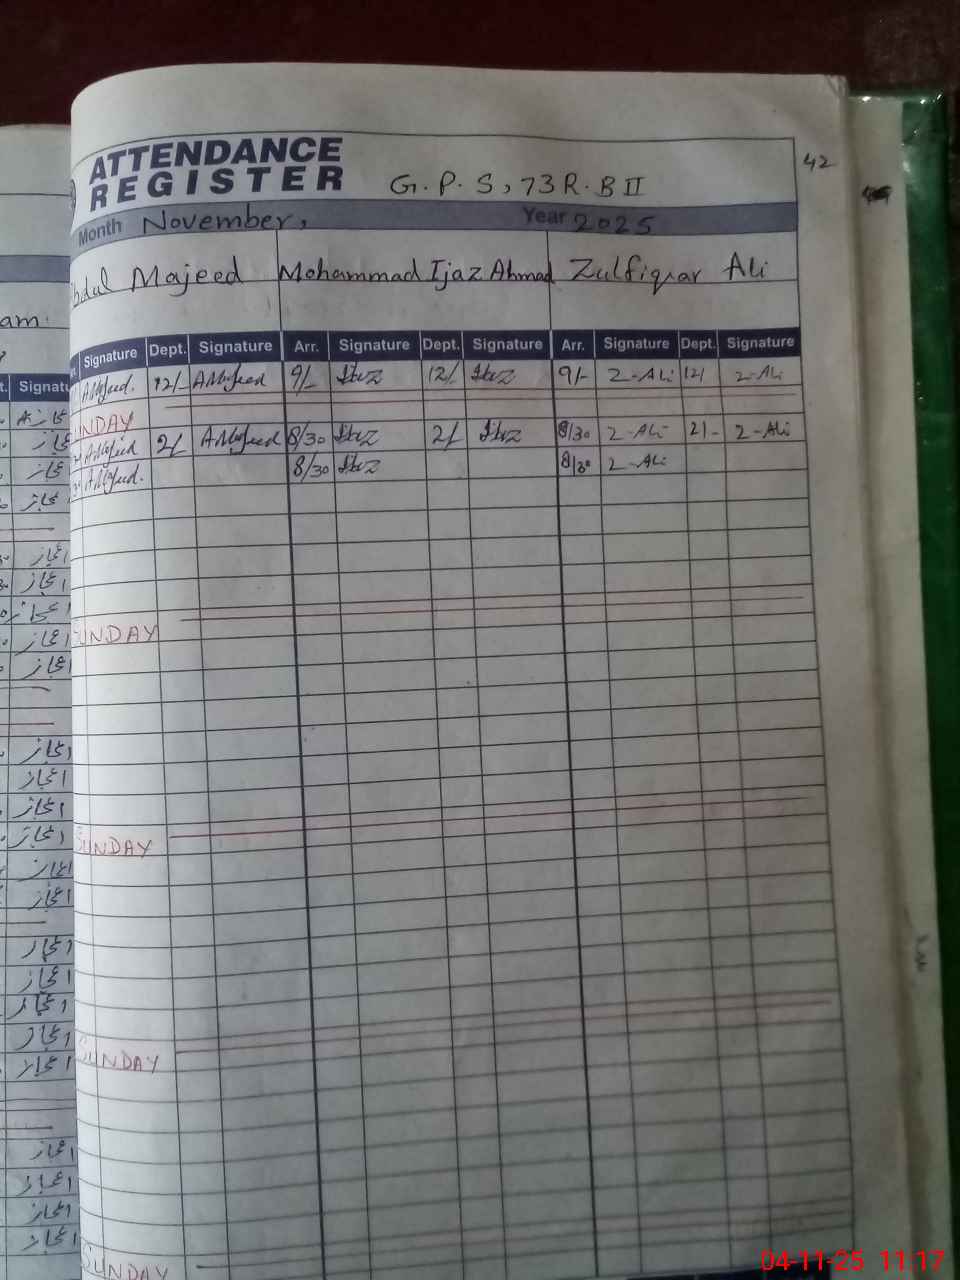 ATTENDANCE
REGISTER G.P.S, 73 R.B II
42
Month November, Year 2025
Majeed Mohammad Ijaz Ahmad Zulfiqar Ali
Signature Dept. Signature Arr. Signature Dept. Signature Arr. Signature Dept. Signature
AMajeed. 12/- AMajeed 9/- Ijaz 12/- Ijaz 9/- Z-Ali 12/ Z-Ali
SUNDAY
AMajeed 2/- AMajeed 8/30 Ijaz 2/- Ijaz 8/30 Z-Ali 2/- Z-Ali
AMajeed. 8/30 Ijaz 8/30 Z-Ali
SUNDAY
SUNDAY
SUNDAY
SUNDAY
اعجاز
اعجاز
اعجاز
اعجاز
اعجاز
اعجاز
اعجاز
اعجاز
اعجاز
اعجاز
04-11-25 11:17